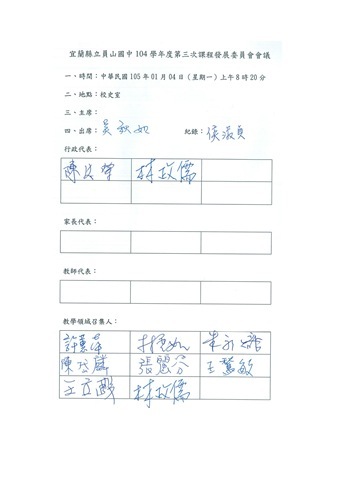 宜蘭縣立員山國中104學年度第三次課程發展委員會會議
一、時間：中華民國105年01月04日（星期一）上午8時20分
二、地點：校史室
三、主席：
四、出席：吳秋如 紀錄：侯淑貞
行政代表：
林政儒
家長代表：
教師代表：
教學領域召集人：
許惠萍
王慧敏
林政儒